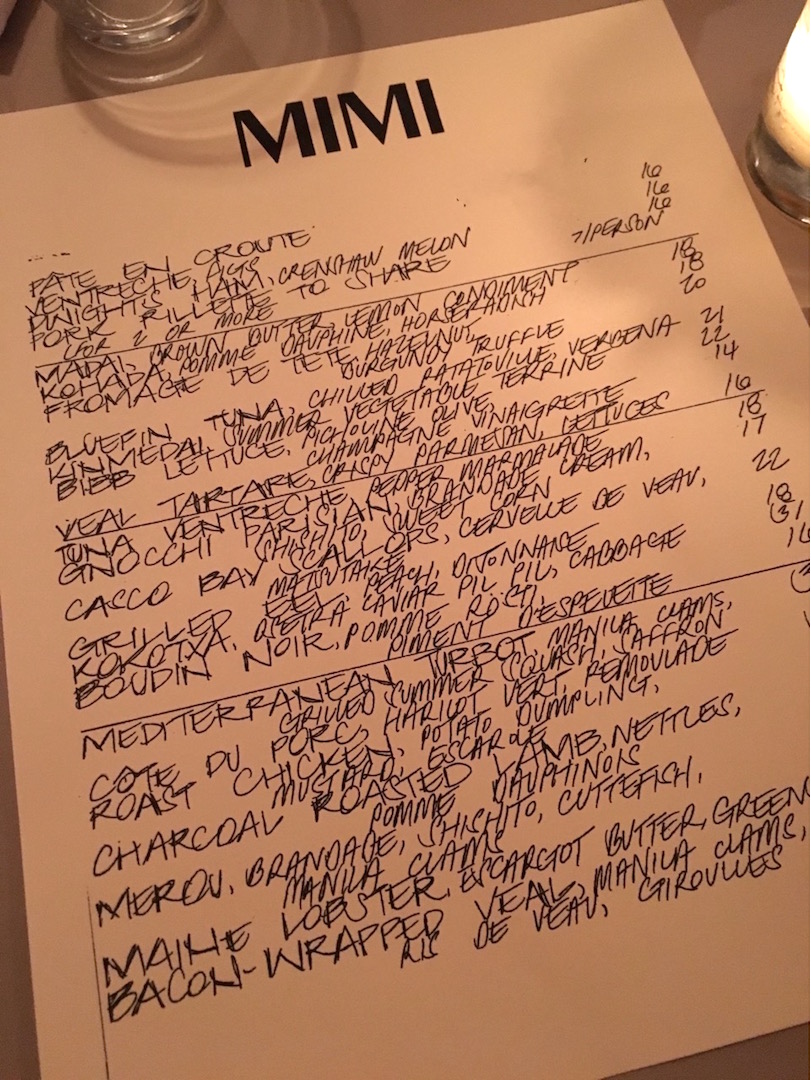 MIMI
PATE EN CROUTE 16
VENTRECHE, FIGS 16
DWIGHT'S HAM, CRENSHAW MELON 16
PORK RILLETTE TO SHARE 7/PERSON
(FOR 2 OR MORE)
MADAI, BROWN BUTTER, LEMON CONDIMENT 18
KOHADA, POMME DAUPHINE, HORSERADISH 18
FROMAGE DE TETE, HAZELNUT, 20
BURGUNDY TRUFFLE
BLUEFIN TUNA, CHILLED RATATOUILLE, VERBENA 21
KINMEDAI, SUMMER VEGETABLE TERRINE 22
BIBB LETTUCE, PICHOLINE OLIVE 14
CHAMPAGNE VINAIGRETTE
VEAL TARTAIRE, CRISPY PARMESAN, LETTUCES 16
TUNA VENTRECHE, PEPPER MARMALADE 18
GNOCCHI PARISIAN, BRANDADE CREAM, 17
SHISHITO, SWEET CORN
CASCO BAY SCALLOPS, CERVELLE DE VEAU, 22
MATSUTAKE
GRILLED EEL, PEACH, DIJONNAISE 18
KOKOTXA, OSETRA CAVIAR PIL PIL, CABBAGE 31
BOUDIN NOIR, POMME ROSTI, 16
PIMENT D'ESPELETTE
MEDITERRANEAN TURBOT, MANILA CLAMS,
GRILLED SUMMER SQUASH, SAFFRON
COTE DU PORC, HARICOT VERT, REMOULADE
ROAST CHICKEN, POTATO DUMPLING,
MUSTARD, ESCAROLE
CHARCOAL ROASTED LAMB, NETTLES,
POMME DAUPHINOIS
MEROU, BRANDADE, SHISHITO, CUTTEFISH,
MANILA CLAMS
MAINE LOBSTER, ESCARGOT BUTTER, GREENS
BACON-WRAPPED VEAL, MANILA CLAMS,
RIS DE VEAU, GIROULLES